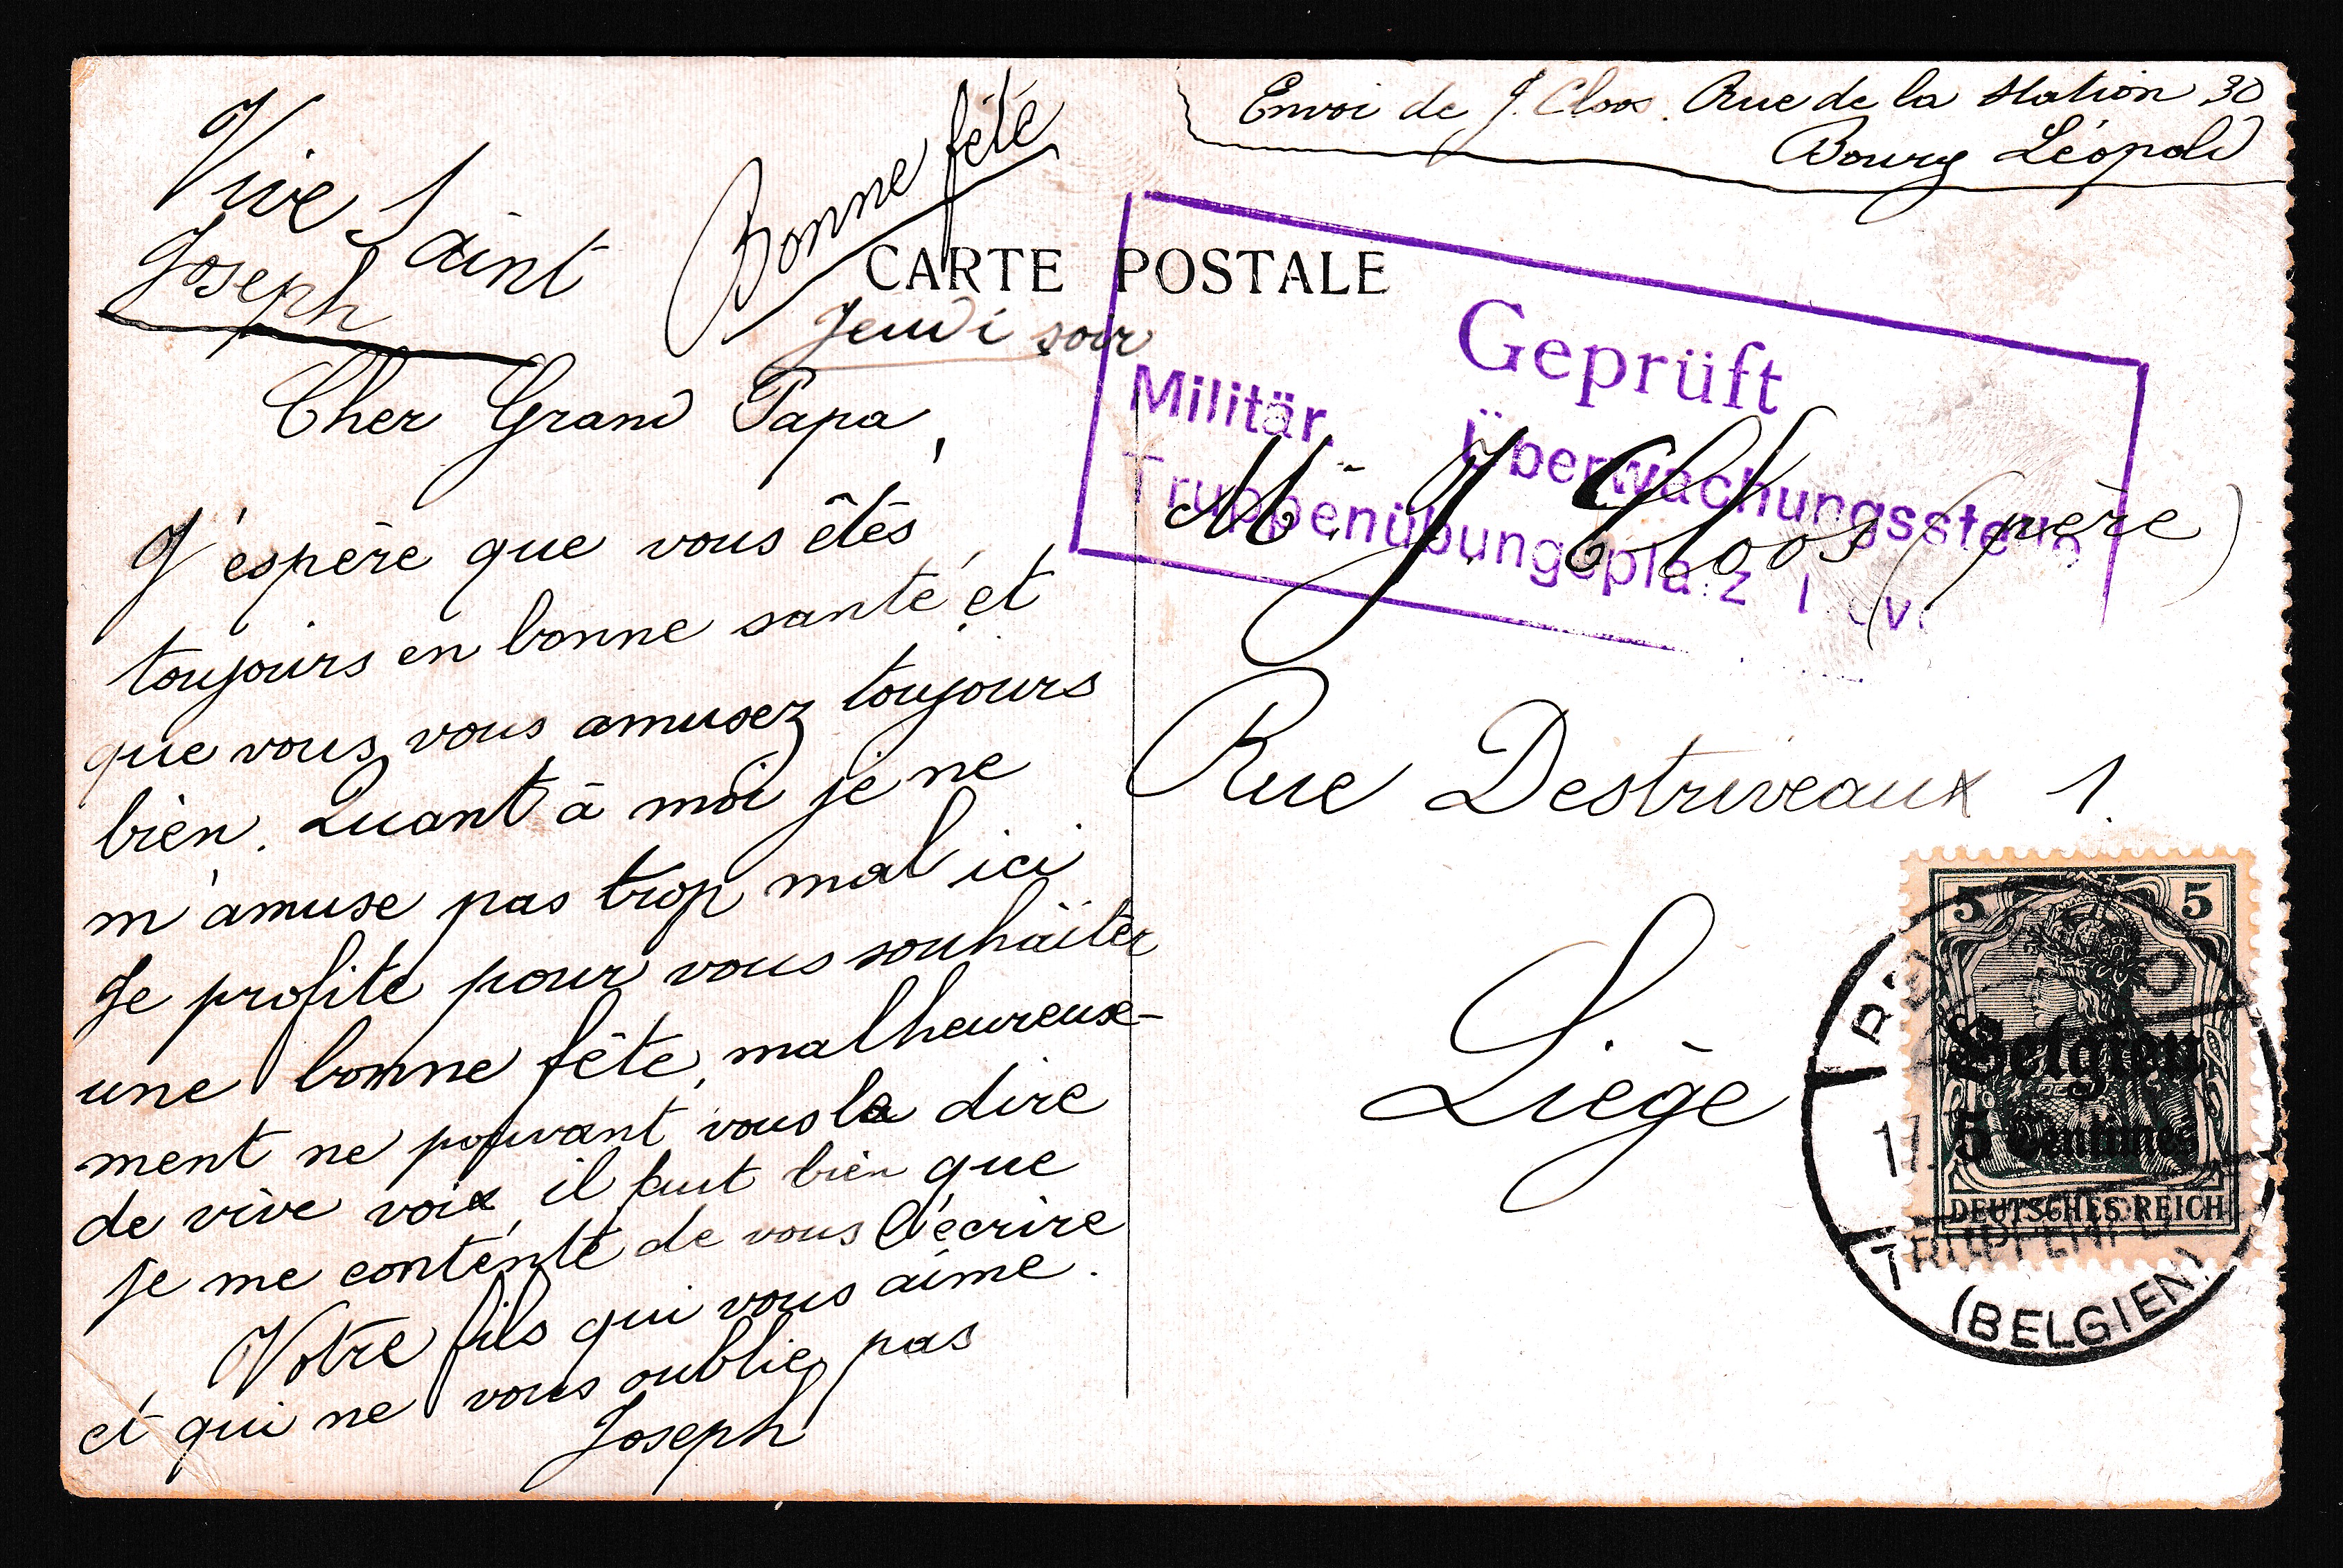 Envoi de J. Cloos. Rue de la Station 30
Bourg Léopold
Vive Saint
Joseph
Bonne fête
CARTE POSTALE
Jeudi soir
Cher Grand Papa,
J'espère que vous êtés
toujours en bonne santé et
que vous vous amusez toujours
bien. Quant à moi je ne
m'amuse pas trop mal ici
Je profite pour vous souhaiter
une bonne fête, malheureuse-
ment ne pouvant vous la dire
de vive voix, il faut bien que
je me contente de vous l'écrire
Votre fils qui vous aime.
et qui ne vous oublie pas
Joseph
Geprüft
Militär. Überwachungsstelle
Truppenübungsplatz
Mr. J Cloos (père)
Rue Destriveaux 1.
Liège
5 5
Belgien
5 Centimes
DEUTSCHES REICH
(BELGIEN)